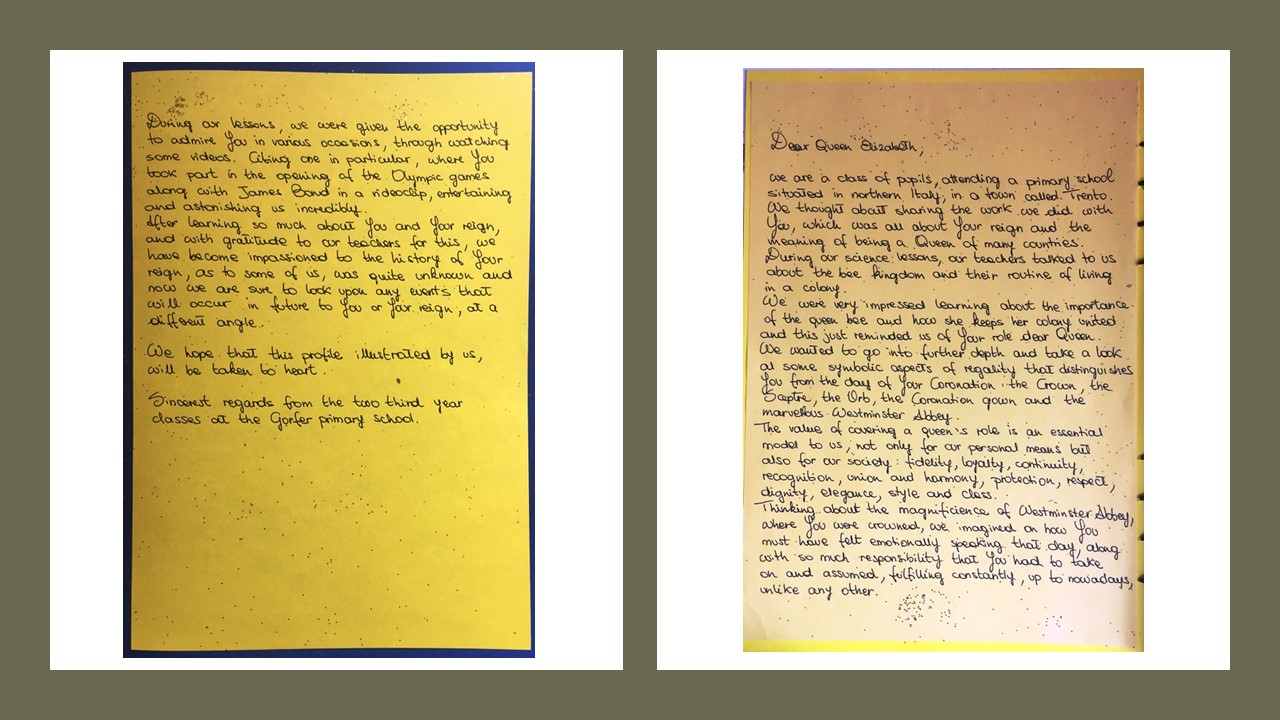 During our lessons, we were given the opportunity
to admire You in various occasions, through watching
some videos. Citing one in particular, where You
took part in the opening of the Olympic games
along with James Bond in a videoclip, entertaining
and astonishing us incredibly.
After learning so much about You and Your reign,
and with gratitude to our teachers for this, we
have become impassioned to the history of Your
reign, as to some of us, was quite unknown and
now we are sure to look upon any events that
will occur in future to You or Your reign, at a
different angle.
We hope that this profile illustrated by us,
will be taken to heart.
Sincerest regards from the two third year
classes at the Gorfer primary school.
Dear Queen Elizabeth,
we are a class of pupils, attending a primary school
situated in northern Italy, in a town called: Trento.
We thought about sharing the work we did with
You, which was all about Your reign and the
meaning of being a Queen of many countries.
During our science lessons, our teachers talked to us
about the bee kingdom and their routine of living
in a colony.
We were very impressed learning about the importance
of the queen bee and how she keeps her colony united
and this just reminded us of Your role dear Queen.
We wanted to go into further depth and take a look
at some symbolic aspects of regality that distinguishes
You from the day of Your Coronation: the Crown, the
Sceptre, the Orb, the Coronation gown and the
marvellous Westminster Abbey.
The value of covering a queen's role is an essential
model to us, not only for our personal means but
also for our society: fidelity, loyalty, continuity,
recognition, union and harmony, protection, respect,
dignity, elegance, style and class.
Thinking about the magnificience of Westminster Abbey,
where You were crowned, we imagined on how You
must have felt emotionally speaking that day, along
with so much responsibility that You had to take
on and assumed, fulfilling constantly, up to nowadays,
unlike any other.